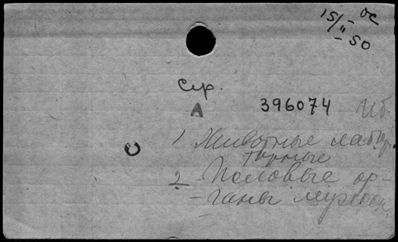 15/II-50
ос
Сер.
А
396074 Иб.
1 Животные лабор.
торные
2 Половые ор-
-ганы мужск.